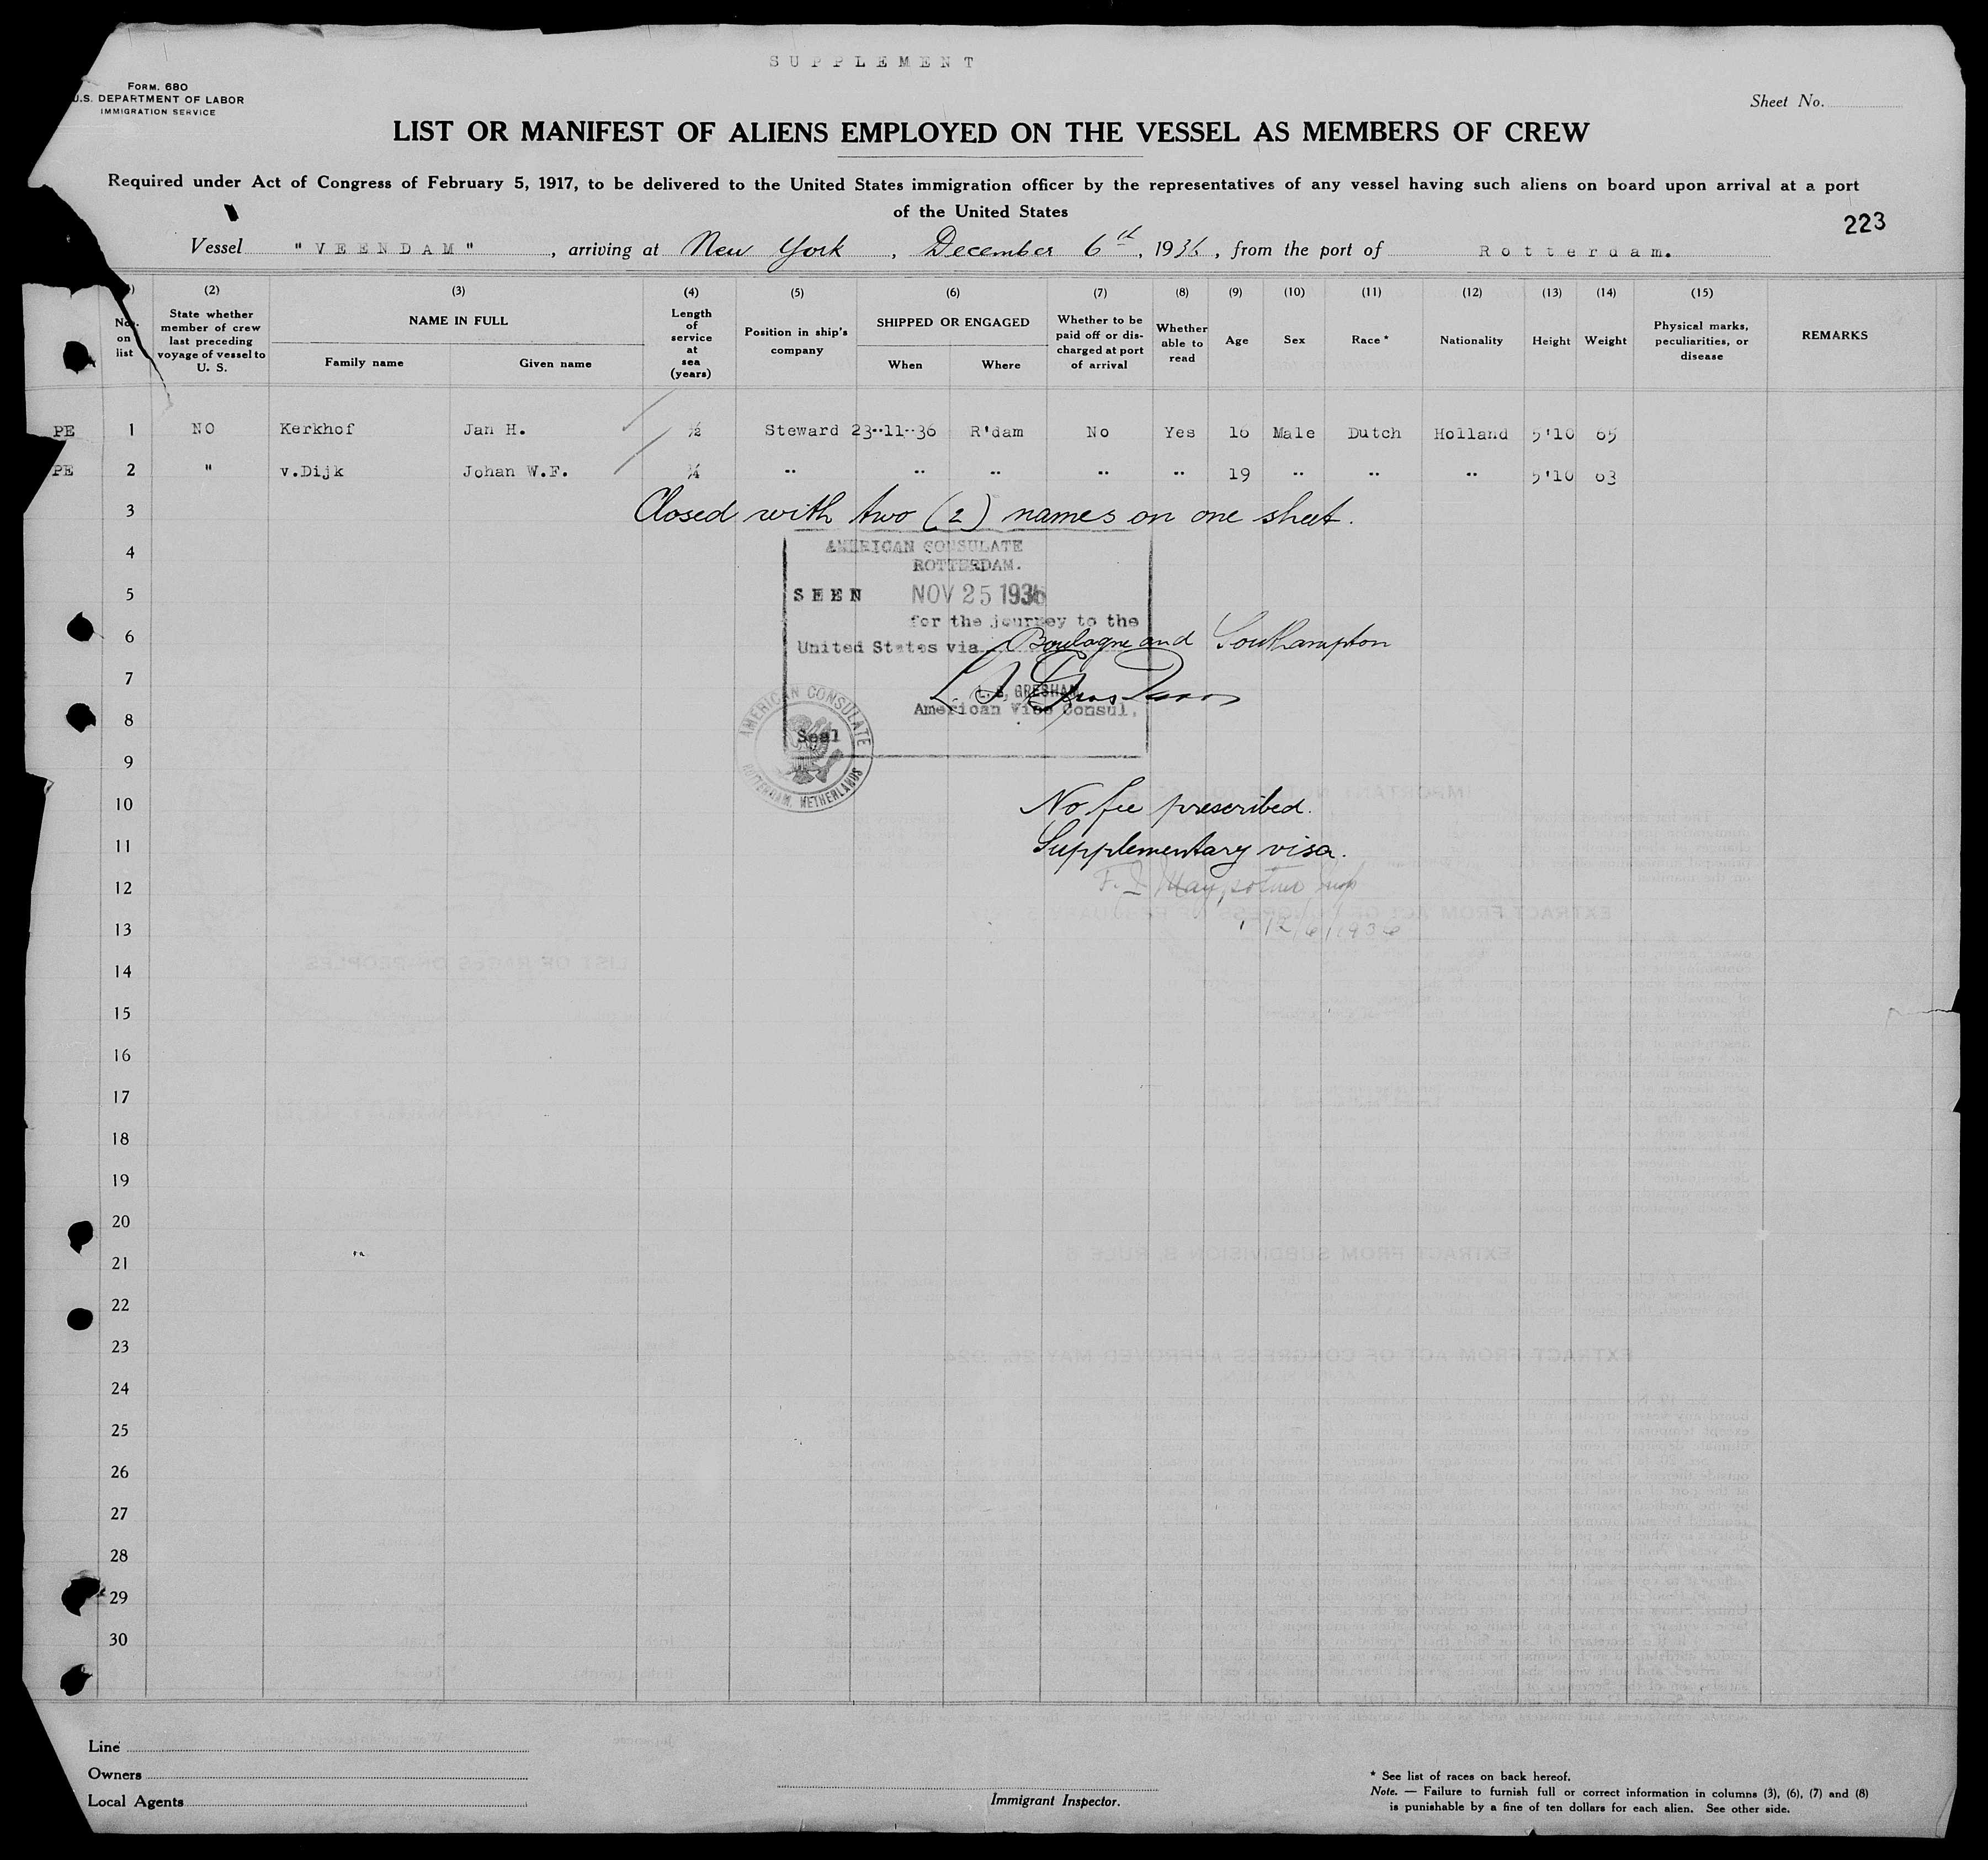 SUPPLEMENT
FORM. 680
U.S. DEPARTMENT OF LABOR
IMMIGRATION SERVICE
Sheet No.
LIST OR MANIFEST OF ALIENS EMPLOYED ON THE VESSEL AS MEMBERS OF CREW
Required under Act of Congress of February 5, 1917, to be delivered to the United States immigration officer by the representatives of any vessel having such aliens on board upon arrival at a port
of the United States
223
Vessel "VEENDAM", arriving at New York, December 6th, 1936, from the port of Rotterdam.
(2) (3) (4) (5) (6) (7) (8) (9) (10) (11) (12) (13) (14) (15)
No. on list
State whether member of crew last preceding voyage of vessel to U. S.
NAME IN FULL
Family name
Given name
Length of service at sea (years)
Position in ship's company
SHIPPED OR ENGAGED
When
Where
Whether to be paid off or discharged at port of arrival
Whether able to read
Age
Sex
Race *
Nationality
Height
Weight
Physical marks, peculiarities, or disease
REMARKS
PE 1 NO Kerkhof Jan H. ½ Steward 23-11-36 R'dam No Yes 16 Male Dutch Holland 5'10 65
PE 2 " v.Dijk Johan W.F. ¼ " " " " " 19 " " " 5'10 63
3 Closed with two (2) names on one sheet.
4
AMERICAN CONSULATE
ROTTERDAM.
5
SEEN NOV 25 1936
for the journey to the
6
United States via Boulogne and Southampton
7
L. S. GRESHAM
American Vice Consul.
8
Seal
AMERICAN CONSULATE
ROTTERDAM, NETHERLANDS
9
10 No fee prescribed.
11 Supplementary visa.
12
13 12/6/1936
14
15
16
17
18
19
20
21
22
23
24
25
26
27
28
29
30
Line
Owners
Local Agents
Immigrant Inspector.
* See list of races on back hereof.
Note. — Failure to furnish full or correct information in columns (3), (6), (7) and (8)
is punishable by a fine of ten dollars for each alien. See other side.